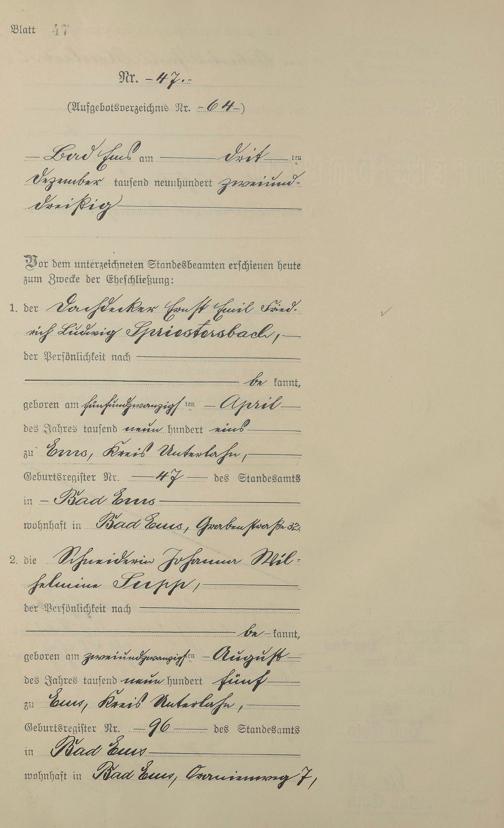 Blatt 47
Nr. -47.-
(Aufgebotsverzeichnis Nr. -64-)
- Bad Ems am drit ten
Dezember tausend neunhundert zweiund-
dreißig
Vor dem unterzeichneten Standesbeamten erschienen heute
zum Zwecke der Eheschließung:
1. der Dachdecker Ernst Emil Fried-
rich Ludwig Spriestersbach,
der Persönlichkeit nach
be kannt,
geboren am fünfundzwanzigs ten April
des Jahres tausend neun hundert eins
zu Ems, Kreis Unterlahn,
Geburtsregister Nr. 47 des Standesamts
in - Bad Ems
wohnhaft in Bad Ems, Grabenstraße 32.
2. die Schneiderin Johanna Wil-
helmine Supp,
der Persönlichkeit nach
be kannt,
geboren am zweiundzwanzigs ten August
des Jahres tausend neun hundert fünf
zu Ems, Kreis Unterlahn,
Geburtsregister Nr. 96 des Standesamts
in Bad Ems
wohnhaft in Bad Ems, Oranienweg 7,